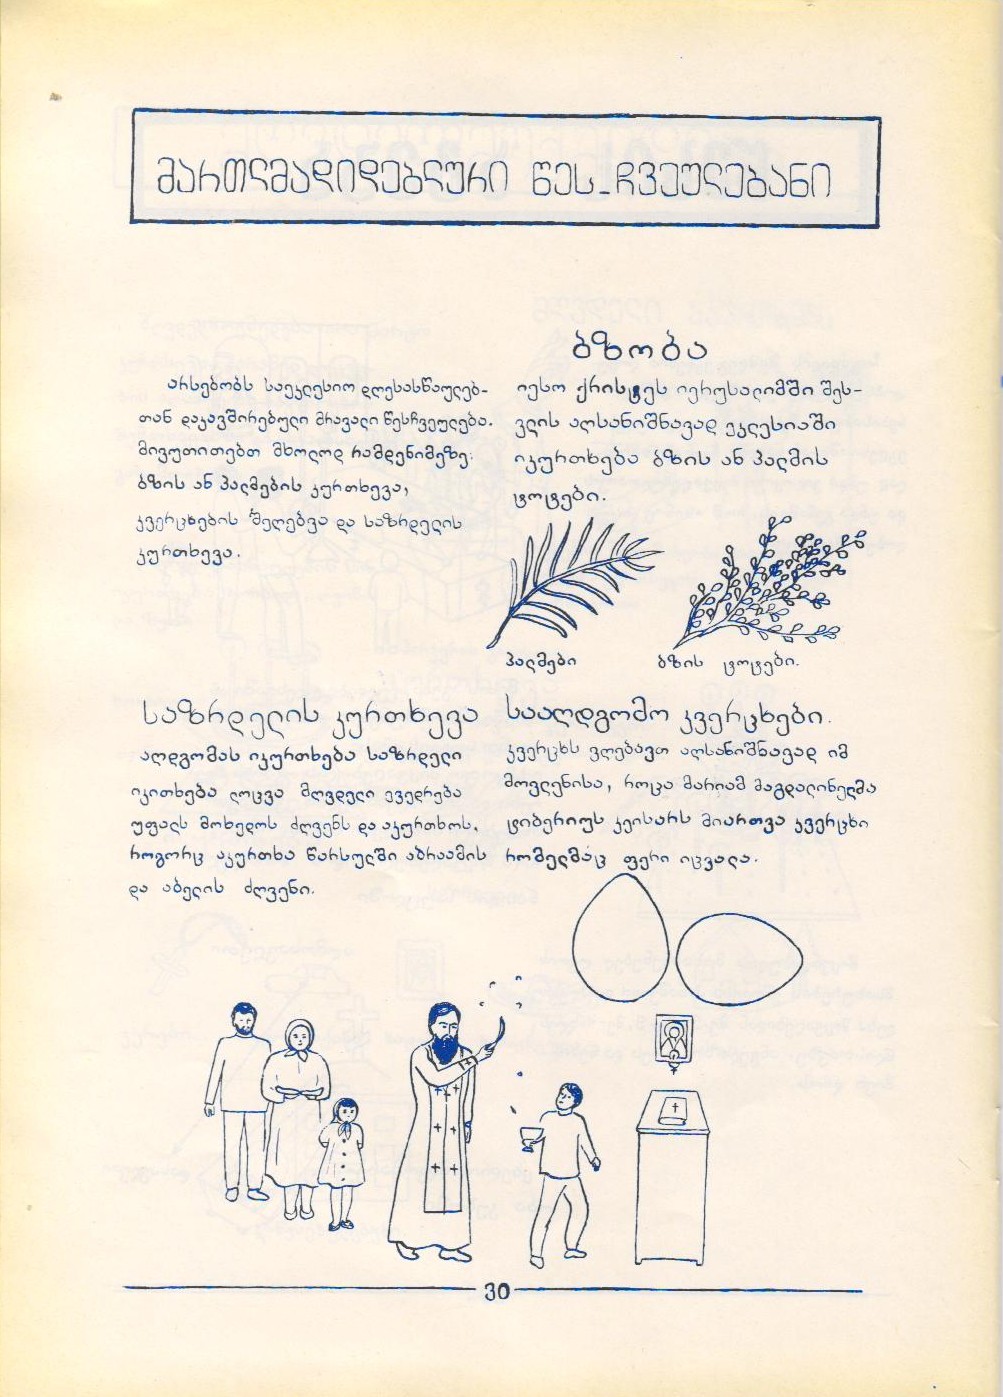 მართლმადიდებლური წეს-ჩვეულებანი
არსებობს საეკლესიო დღესასწაულებ-
თან დაკავშირებული მრავალი წესჩვეულება.
მივუთითებთ მხოლოდ რამდენიმეზე:
ბზის ან პალმების კურთხევა,
კვერცხების შეღებვა და საზრდელის
კურთხევა.
ბზობა
იესო ქრისტეს იერუსალიმში შეს-
ვლის აღსანიშნავად ეკლესიაში
იკურთხება ბზის ან პალმის
ტოტები.
პალმები
ბზის ტოტები.
საზრდელის კურთხევა
აღდგომას იკურთხება საზრდელი
იკითხება ლოცვა მღვდელი ევედრება
უფალს მოხედოს ძღვენს და აკურთხოს,
როგორც აკურთხა წარსულში აბრაამის
და აბელის ძღვენი.
სააღდგომო კვერცხები.
კვერცხს ვღებავთ აღსანიშნავად იმ
მოვლენისა, როცა მარიამ მაგდალინელმა
ტიბერიუს კეისარს მიართვა კვერცხი
რომელმაც ფერი იცვალა.
30